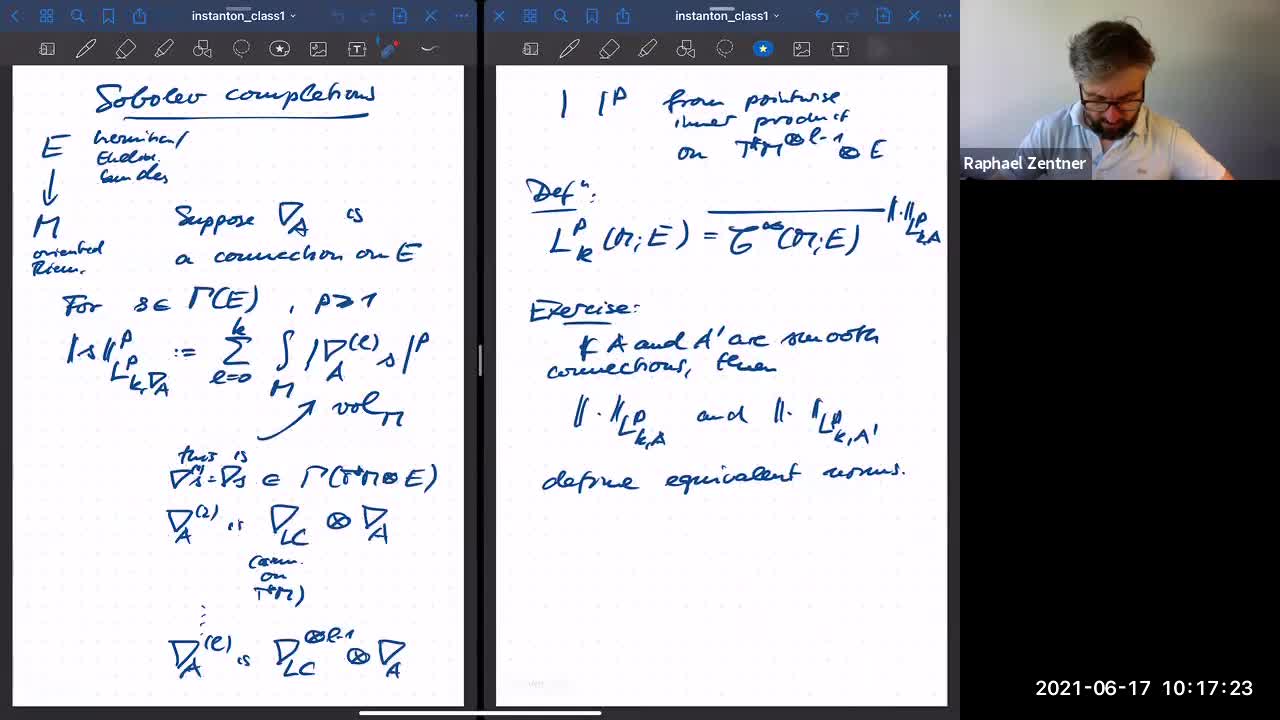 instanton_class1
Sobolev completions
E hermitian/
Euclid.
bundles
↓
M
oriented
Riem.
Suppose ∇_A is
a connection on E
For s ∈ Γ(E), p ≥ 1
‖s‖^p_{L^p_{k,∇_A}} := Σ_{l=0}^{k} ∫_M |∇_A^{(l)} s|^p
vol_M
this is
∇^{(1)}s = ∇s ∈ Γ(T*M ⊗ E)
∇_A^{(2)} is ∇_{LC} ⊗ ∇_A
(conn.
on
T*M)
⋮
∇_A^{(l)} is ∇_{LC}^{⊗ l-1} ⊗ ∇_A
instanton_class1
| |^p from pointwise
inner product
on T*M^{⊗ l-1} ⊗ E
Def^n:
L^p_k(M; E) = \overline{C^∞(M; E)}^{‖·‖_{L^p_{k,A}}}
Exercise:
If A and A' are smooth
connections, then
‖·‖_{L^p_{k,A}} and ‖·‖_{L^p_{k,A'}}
define equivalent norms.
Raphael Zentner
2021-06-17 10:17:23